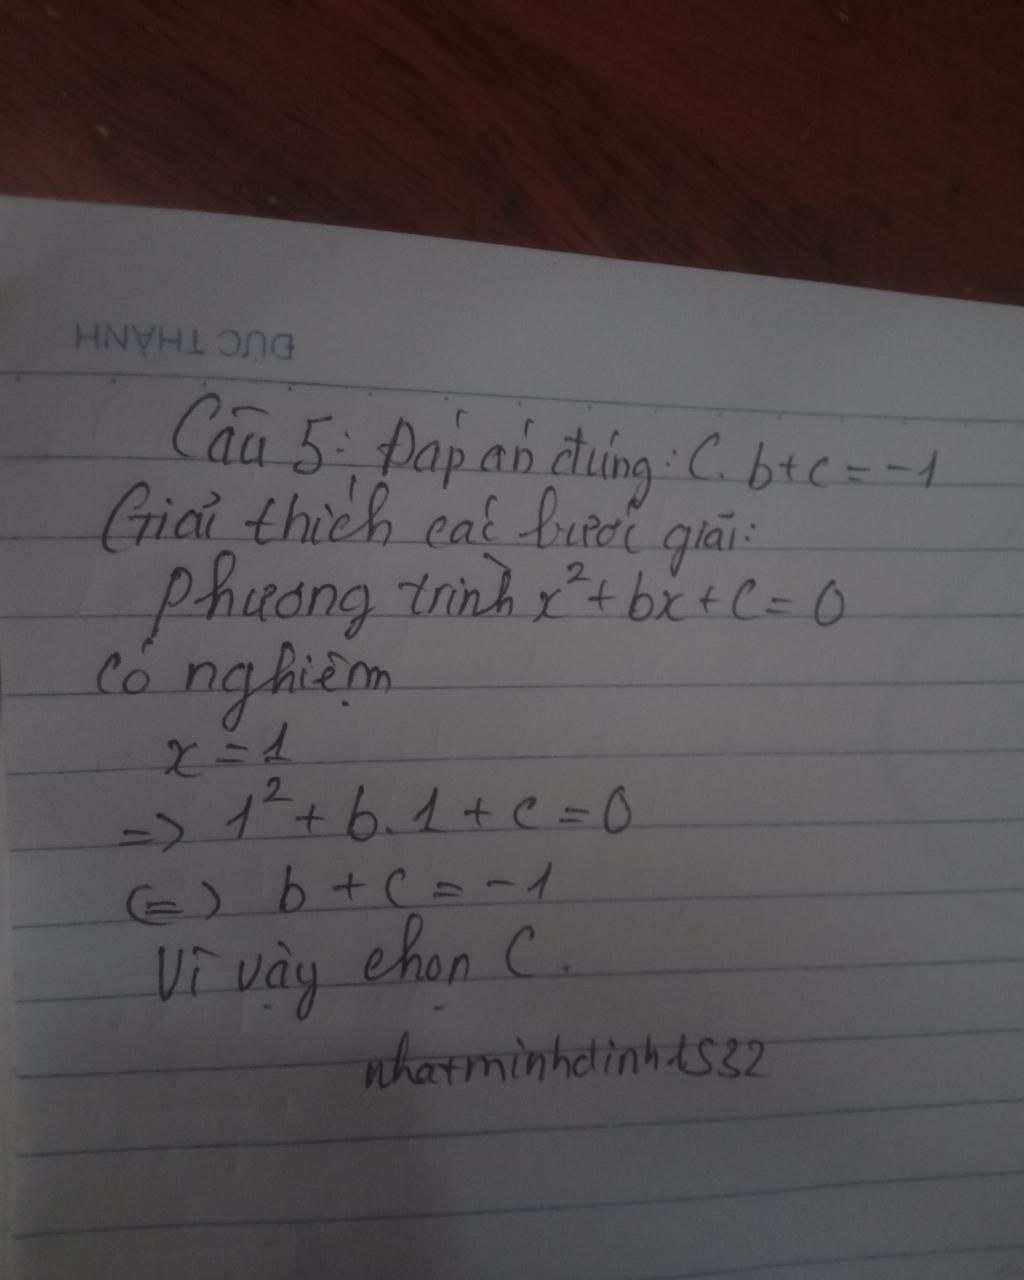 ĐỨC THÀNH
Câu 5: Đáp án đúng: C. b+c=-1
Giải thích các bước giải:
Phương trình x²+bx+c=0
có nghiệm
x=1
=> 1²+b.1+c=0
(=) b+c=-1
Vì vậy chọn C.
nhatminhdinhts32